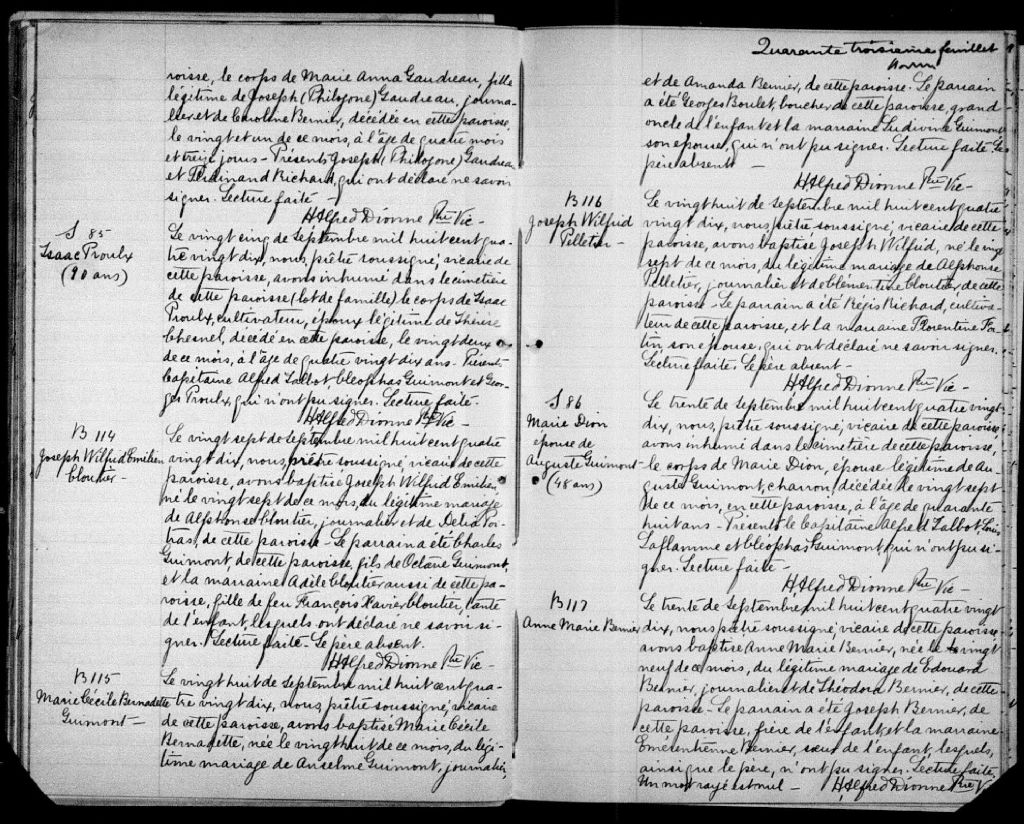 roisse, le corps de Marie Anna Gaudreau, fille
légitime de Joseph (Philogone) Gaudreau, journa-
lier et de Caroline Bernier, décédée en cette paroisse,
le vingt et un de ce mois, à l'âge de quatre mois
et treize jours - Présents Joseph (Philogone) Gaudreau
et Ferdinand Richard, qui ont déclaré ne savoir
signer. Lecture faite -
HAlfred Dionne Ptre Vic -
S 85
Isaac Proulx
(90 ans)
Le vingt cinq de Septembre mil huit cent qua-
tre vingt dix, nous, prêtre soussigné, vicaire de
cette paroisse, avons inhumé dans le cimetière
de cette paroisse (lot de famille) le corps de Isaac
Proulx, cultivateur, époux légitime de Thérèse
Chesnel, décédé en cette paroisse, le vingt deux
de ce mois, à l'âge de quatre vingt dix ans - Présents
Capitaine Alfred Talbot, Cléophas Guimont et Geor-
ges Proulx, qui n'ont pu signer. Lecture faite.
HAlfred Dionne Ptre Vic -
B 114
Joseph Wilfrid Emilien
Cloutier -
Le vingt sept de Septembre mil huit cent quatre
vingt dix, nous, prêtre soussigné, vicaire de cette
paroisse, avons baptisé Joseph Wilfrid Emilien,
né le vingt sept de ce mois, du légitime mariage
de Alphonse Cloutier, journalier et de Delia Poi-
tras, de cette paroisse - Le parrain a été Charles
Guimont, de cette paroisse, fils de Octave Guimont,
et la marraine Adèle Cloutier aussi de cette pa-
roisse, fille de feu François Xavier Cloutier, tante
de l'enfant, lesquels ont déclaré ne savoir si-
gner. Lecture faite - Le père absent.
HAlfred Dionne Ptre Vic -
B 115
Marie Cécile Bernadette
Guimont -
Le vingt huit de Septembre mil huit cent qua-
tre vingt dix, nous, prêtre soussigné, vicaire
de cette paroisse, avons baptisé Marie Cécile
Bernadette, née le vingt huit de ce mois, du légi-
time mariage de Anselme Guimont, journalier,
Quarante troisième feuillet
et de Amanda Bernier, de cette paroisse. Le parrain
a été Georges Boulet, boucher de cette paroisse, grand
oncle de l'enfant et la marraine Ludivine Guimont
son épouse, qui n'ont pu signer. Lecture faite. Le
père absent -
HAlfred Dionne Ptre Vic -
B 116
Joseph Wilfrid
Pelletier -
Le vingt huit de Septembre mil huit cent quatre
vingt dix, nous, prêtre soussigné, vicaire de cette
paroisse, avons baptisé Joseph Wilfrid, né le vingt
sept de ce mois, du légitime mariage de Alphonse
Pelletier, journalier et de Clémentine Cloutier, de cette
paroisse - Le parrain a été Régis Richard, cultiva-
teur de cette paroisse, et la marraine Florentine For-
tin, son épouse, qui ont déclaré ne savoir signer.
Lecture faite. Le père absent -
HAlfred Dionne Ptre Vic -
S 86
Marie Dion
épouse de
Auguste Guimont -
(48 ans)
Le trente de Septembre mil huit cent quatre vingt
dix, nous, prêtre soussigné, vicaire de cette paroisse,
avons inhumé dans le cimetière de cette paroisse,
le corps de Marie Dion, épouse légitime de Au-
guste Guimont, charron, décédée le vingt sept
de ce mois, en cette paroisse, à l'âge de quarante
huit ans - Présents le Capitaine Alfred Talbot, Louis
Laflamme et Cléophas Guimont, qui n'ont pu si-
gner. Lecture faite -
HAlfred Dionne Ptre Vic -
B 117
Anne Marie Bernier
Le trente de Septembre mil huit cent quatre vingt
dix, nous prêtre soussigné, vicaire de cette paroisse
avons baptisé Anne Marie Bernier, née le vingt
neuf de ce mois, du légitime mariage de Edouard
Bernier, journalier et de Théodora Bernier, de cette
paroisse - Le parrain a été Joseph Bernier, de
cette paroisse, frère de l'enfant et la marraine
Emérentienne Bernier, sœur de l'enfant, lesquels,
ainsi que le père, n'ont pu signer. Lecture faite.
Un mot rayé est nul - HAlfred Dionne Ptre V